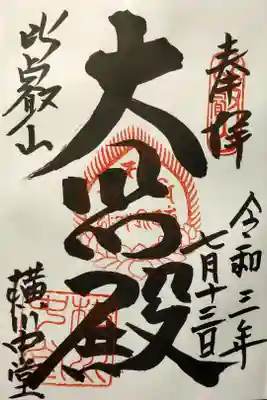 奉拝
令和三年
七月十三日
大悲殿
比叡山
横川中堂